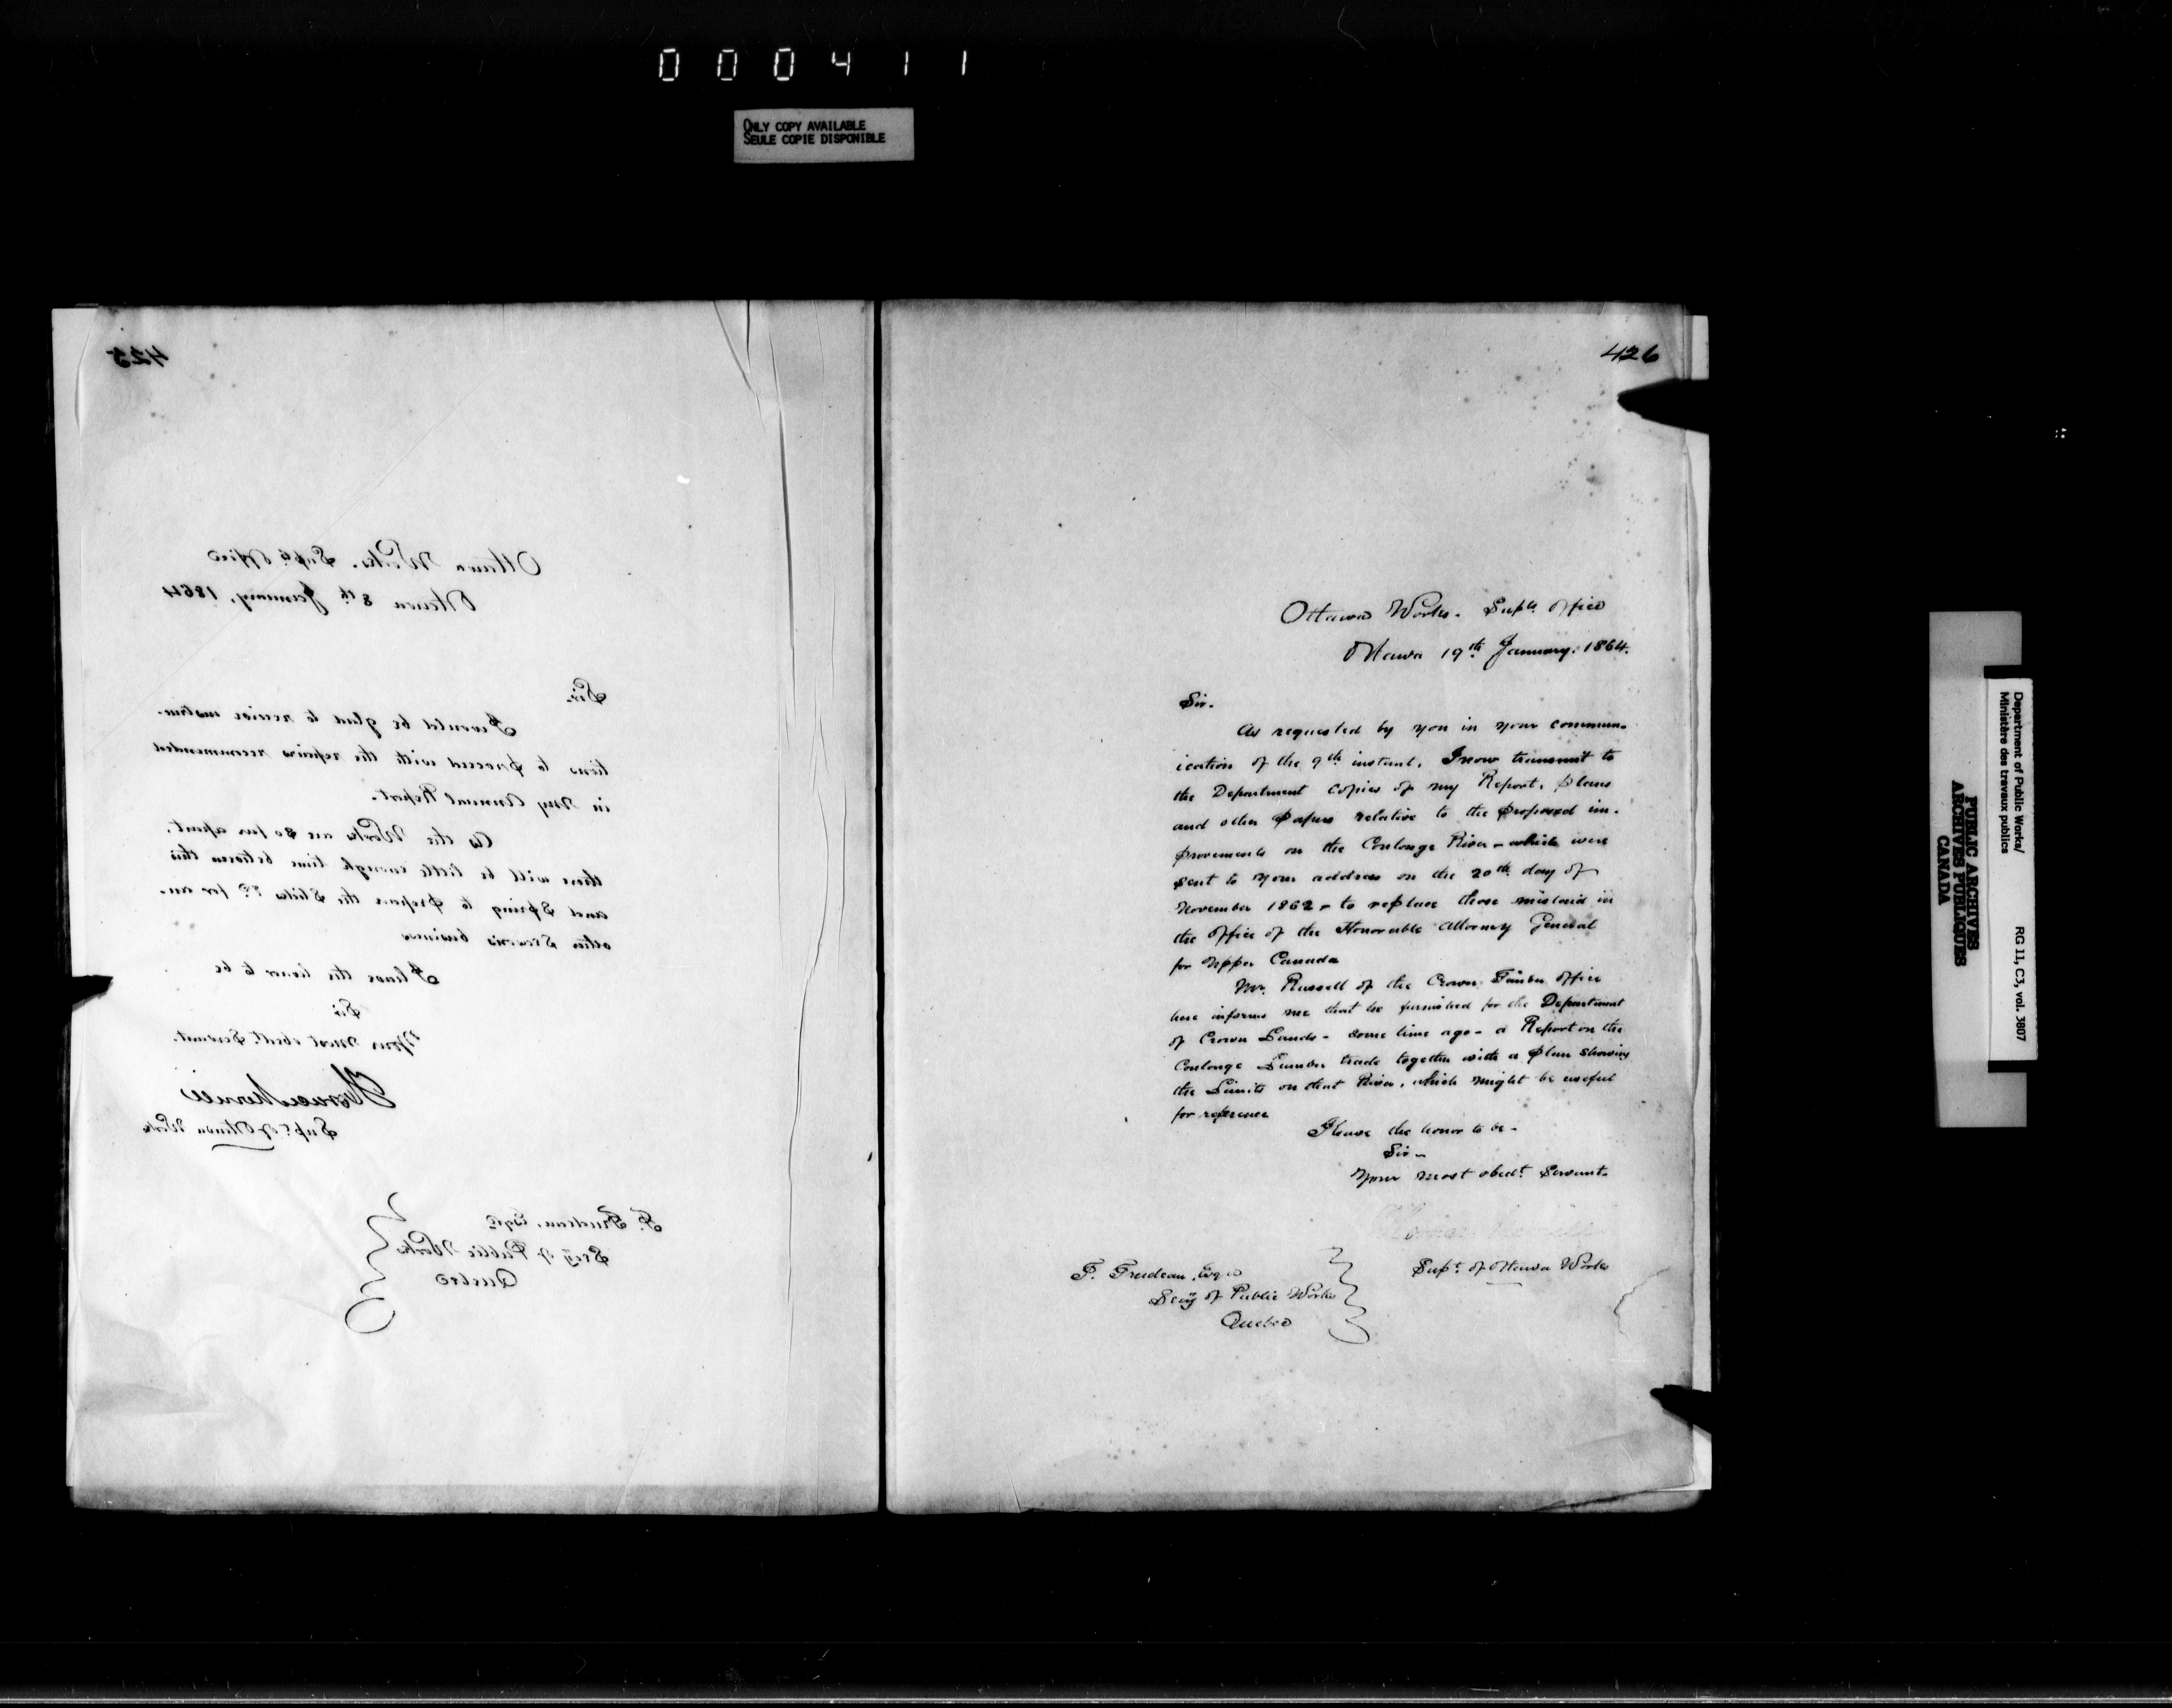 000411
ONLY COPY AVAILABLE
SEULE COPIE DISPONIBLE
425
Ottawa Works. Supts. Office
Ottawa 8th January, 1864
Sir.
I would be glad to receive instruc-
tions to proceed with the repairs recommended
in my Annual Report.
As the Works are so far apart,
there will be little enough time between this
and Spring to prepare the Slides &c for an-
other Season's business
I have the honor to be
Sir
Your most obedt. Servant.
Horace Merrill
Supt. of Ottawa Works
F. Trudeau, Esqre
Secy of Public Works
Quebec
426
Ottawa Works. Supts. Office
Ottawa 19th January. 1864.
Sir.
As requested by you in your commun-
ication of the 9th instant, I now transmit to
the Department copies of my Report, plans
and other papers relative to the proposed im-
provements on the Coulonge River - which were
sent to your address on the 20th day of
November 1862 - to replace those mislaid in
the Office of the Honorable Attorney General
for Upper Canada
Mr. Russell of the Crown Timber Office
here informs me that he furnished for the Department
of Crown Lands - some time ago - a Report on the
Coulonge Lumber trade together with a plan showing
the Limits on that River, which might be useful
for reference
I have the honor to be -
Sir -
Your most obedt. Servant.
Horace Merrill
Supt. of Ottawa Works
F. Trudeau, Esqre
Secy of Public Works
Quebec
Department of Public Works/
Ministère des travaux publics
RG 11, C3, vol. 3807
PUBLIC ARCHIVES
ARCHIVES PUBLIQUES
CANADA